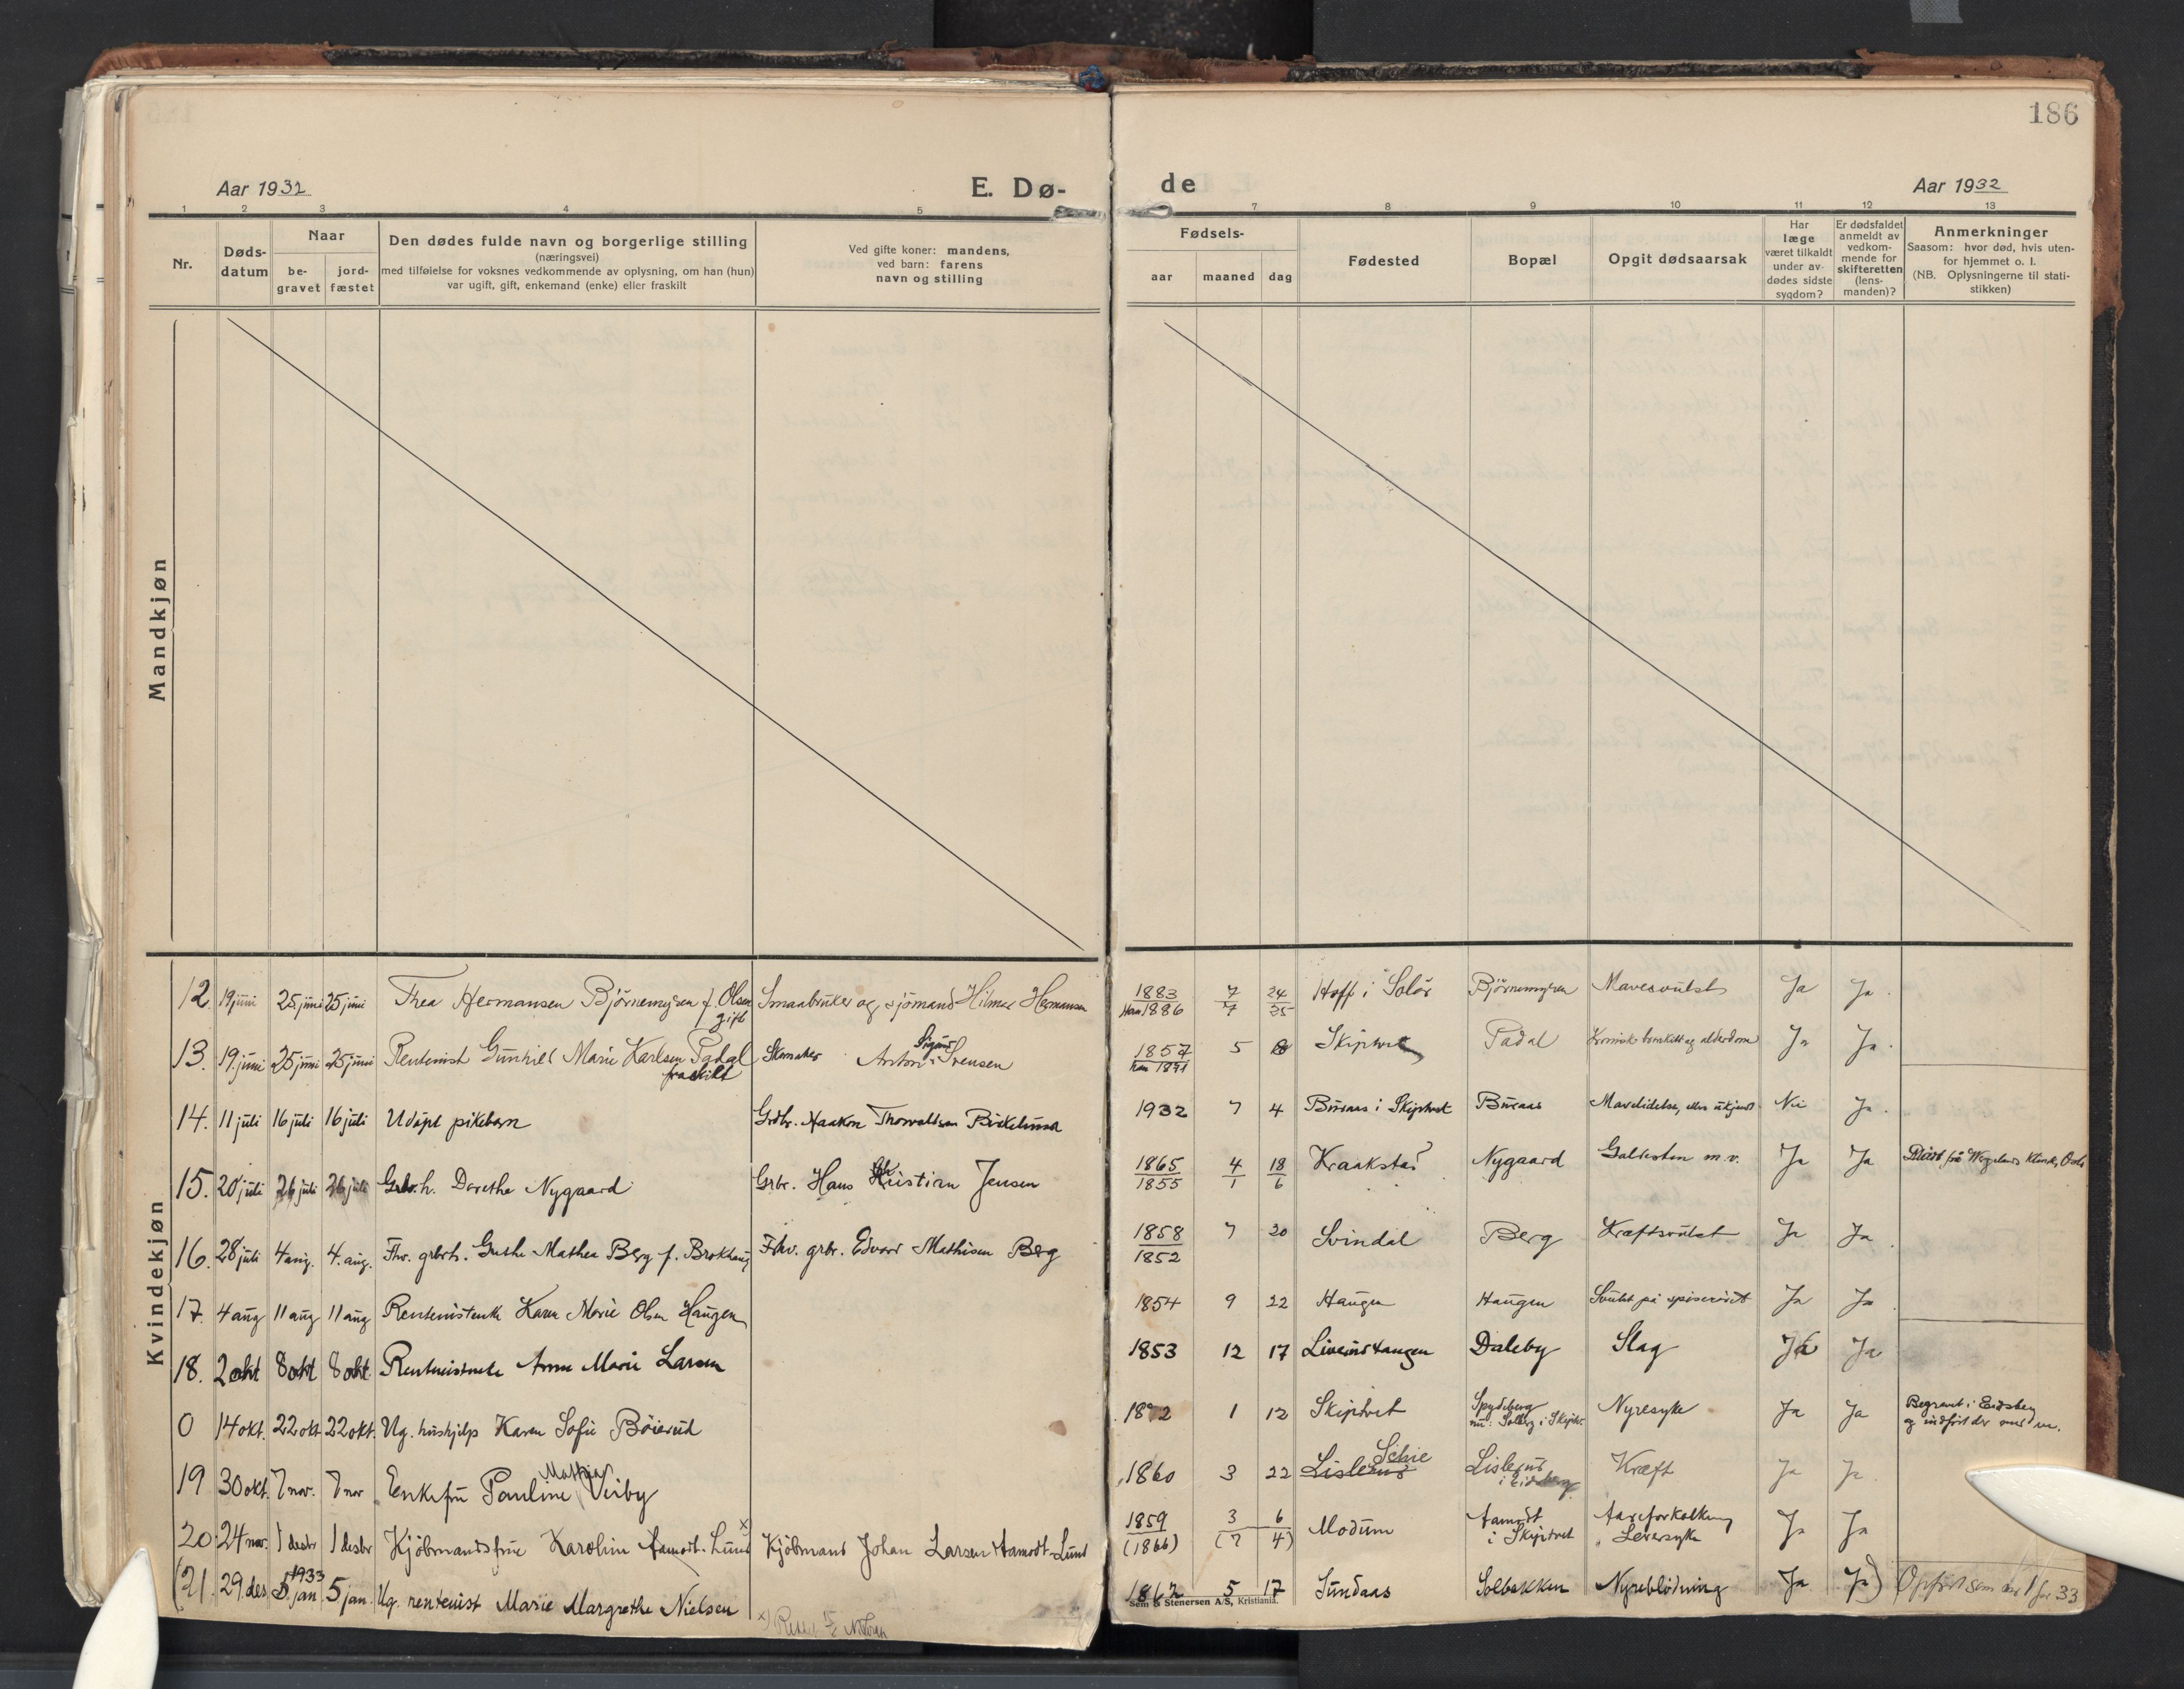 186
Aar 1932
E. Dø-
de
Aar 1932
1 2 3 4 5 7 8 9 10 11 12 13
Nr.
Døds-
datum
Naar
be-
gravet
jord-
fæstet
Den dødes fulde navn og borgerlige stilling
(næringsvei)
med tilføielse for voksnes vedkommende av oplysning, om han (hun)
var ugift, gift, enkemand (enke) eller fraskilt
Ved gifte koner: mandens,
ved barn: farens
navn og stilling
Fødsels-
aar maaned dag
Fødested
Bopæl
Opgit dødsaarsak
Har
læge
været tilkaldt
under av-
dødes sidste
sygdom?
Er dødsfaldet
anmeldt av
vedkom-
mende for
skifteretten
(lens-
manden)?
Anmerkninger
Saasom: hvor død, hvis uten-
for hjemmet o. l.
(NB. Oplysningerne til stati-
stikken)
Mandkjøn
Kvindekjøn
12 19 juni 25 juni 25 juni Thea Hermansen Björnemyren f. Olsen gift Smaabruker og sjömand Hilmer Hermansen 1883 7 24 Hoff i Solör Björnemyren Mavesvulst Ja Ja
1886 7 25
13. 19. juni 25 juni 25 juni Rentenist Gunhild Marie Karlsen Padal fraskilt Skomaker Anton Sigurd Svensen 1857 5 8 Skiptvet Padal Kronisk bronkitt og alderdom Ja Ja
14. 11 juli 16 juli 16 juli Udöpt pikebarn Grdbr. Haakon Thorvaldsen Birkelund 1932 7 4 Buraas i Skiptvet Buraas Mavelidelse, ellers ukjendt Nei Ja
15. 20 juli 26 juli 26 juli Grbr.h. Dorethe Nygaard Grbr. Hans Kristian Jensen 1865 4 18 Kraakstad Nygaard Galdesten m.v. Ja Ja
1855 1 6
16. 28 juli 4 aug. 4. aug. Fhv. grbrh. Mathea Berg f. Brekhaug Fhv. grbr. Edvard Mathisen Berg 1858 7 20 Svindal Berg Kræftsvulst Ja Ja
1852
17. 4 aug 11 aug 11 aug Rentenistenke Karen Marie Olsen Haugen 1854 9 22 Haugen Haugen Svulst på spiserøret Ja Ja
18. 2 okt 8 okt 8 okt. Rentenistenke Anne Marie Larsen 1853 12 17 Daleby Slag Ja Ja
0 14 okt. 22 okt 22 okt. Ug. hushjelp Karen Sofie Böierud 1872 1 12 Skiptvet Spydeberg nu: Solberg i Skiptv. Nyresyke Ja Ja Begravet i Eidsberg og indfört der med nr.
19 30 okt. 7 nov. 7 nov Enkefru Pauline Mathea Viby 1860 3 22 Lislerud Lislerud i Eidsberg Kræft Ja Ja
20 24 nov. 1 desbr 1 desbr Kjöbmandsfrue Karoline Aamodt-Lund x Kjöbmand Johan Larsen Aamodt-Lund 1859 3 6 Modum Aamodt i Skiptvet Aareforkalkning, Leversyke Ja Ja
(1866) (7 4)
(21. 29 des 5 jan 1933 5 jan. Ug. rentenist Marie Margrethe Nielsen 1862 5 17 Sundaas Solbakken Nyreblödning Ja Ja) Opfört som nr 1 for 33
Sem & Stenersen A/S, Kristiania.